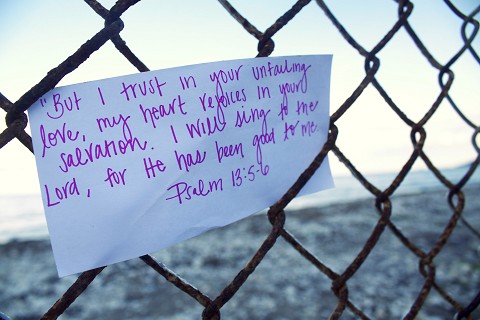 "But I trust in your unfailing
love, my heart rejoices in your
salvation. I will sing to the
Lord, for He has been good to me.
Psalm 13:5-6